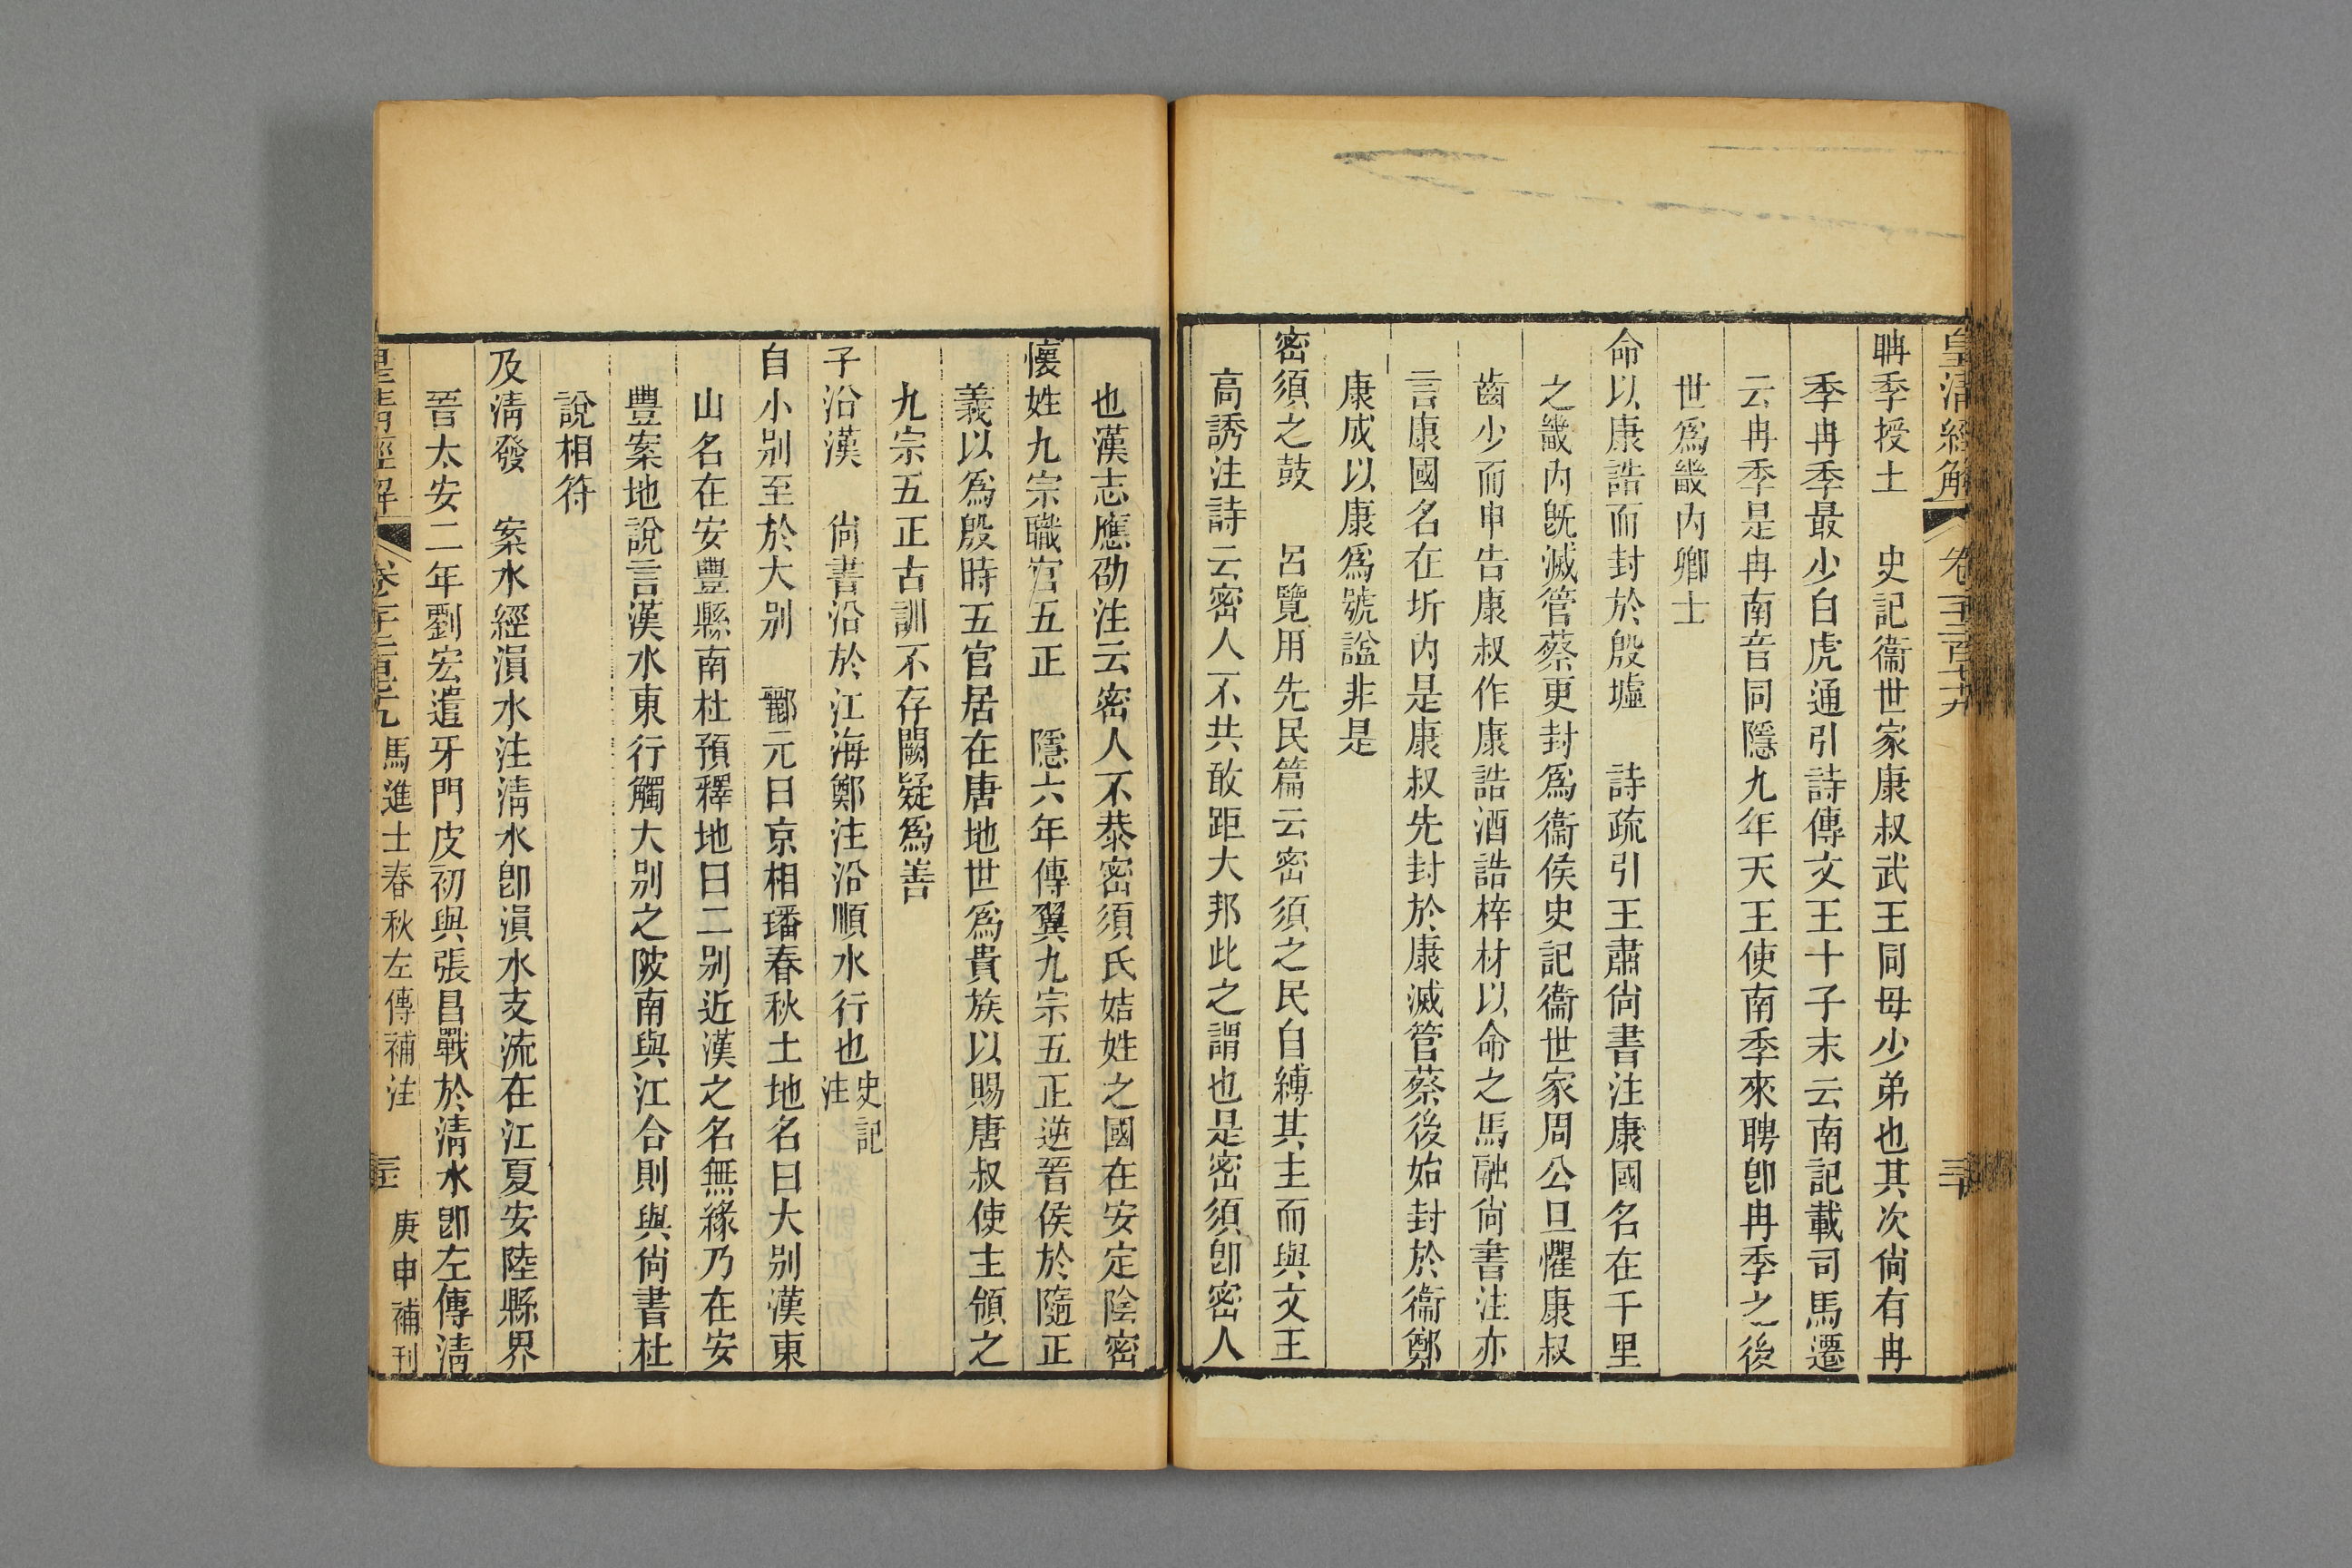 皇清經解
聃季授土　史記衞世家康叔武王同母少弟也其次尙有冉
季冉季最少白虎通引詩傳文王十子末云南記載司馬遷
云冉季是冉南音同隱九年天王使南季來聘卽冉季之後
世爲畿內卿士
命以康誥而封於殷墟　詩疏引王肅尙書注康國名在千里
之畿內旣滅管蔡更封爲衞侯史記衞世家周公旦懼康叔
齒少而申告康叔作康誥酒誥梓材以命之馬融尙書注亦
言康國名在圻內是康叔先封於康滅管蔡後始封於衞鄭
康成以康爲號諡非是
密須之鼓　呂覽用先民篇云密須之民自縛其主而與文王
高誘注詩云密人不共敢距大邦此之謂也是密須卽密人
也漢志應劭注云密人不恭密須氏姞姓之國在安定陰密
懷姓九宗職官五正　隱六年傳翼九宗五正逆晉侯於隨正
義以爲殷時五官居在唐地世爲貴族以賜唐叔使主領之
九宗五正古訓不存闕疑爲善
子沿漢　尙書沿於江海鄭注沿順水行也史記注
自小別至於大別　酈元曰京相璠春秋土地名曰大別漢東
山名在安豐縣南杜預釋地曰二別近漢之名無緣乃在安
豐案地說言漢水東行觸大別之陂南與江合則與尙書杜
說相符
及淸發　案水經溳水注淸水卽溳水支流在江夏安陸縣界
晉太安二年劉宏遣牙門皮初與張昌戰於淸水卽左傳淸
皇淸經解　馬進士春秋左傳補注　庚申補刊